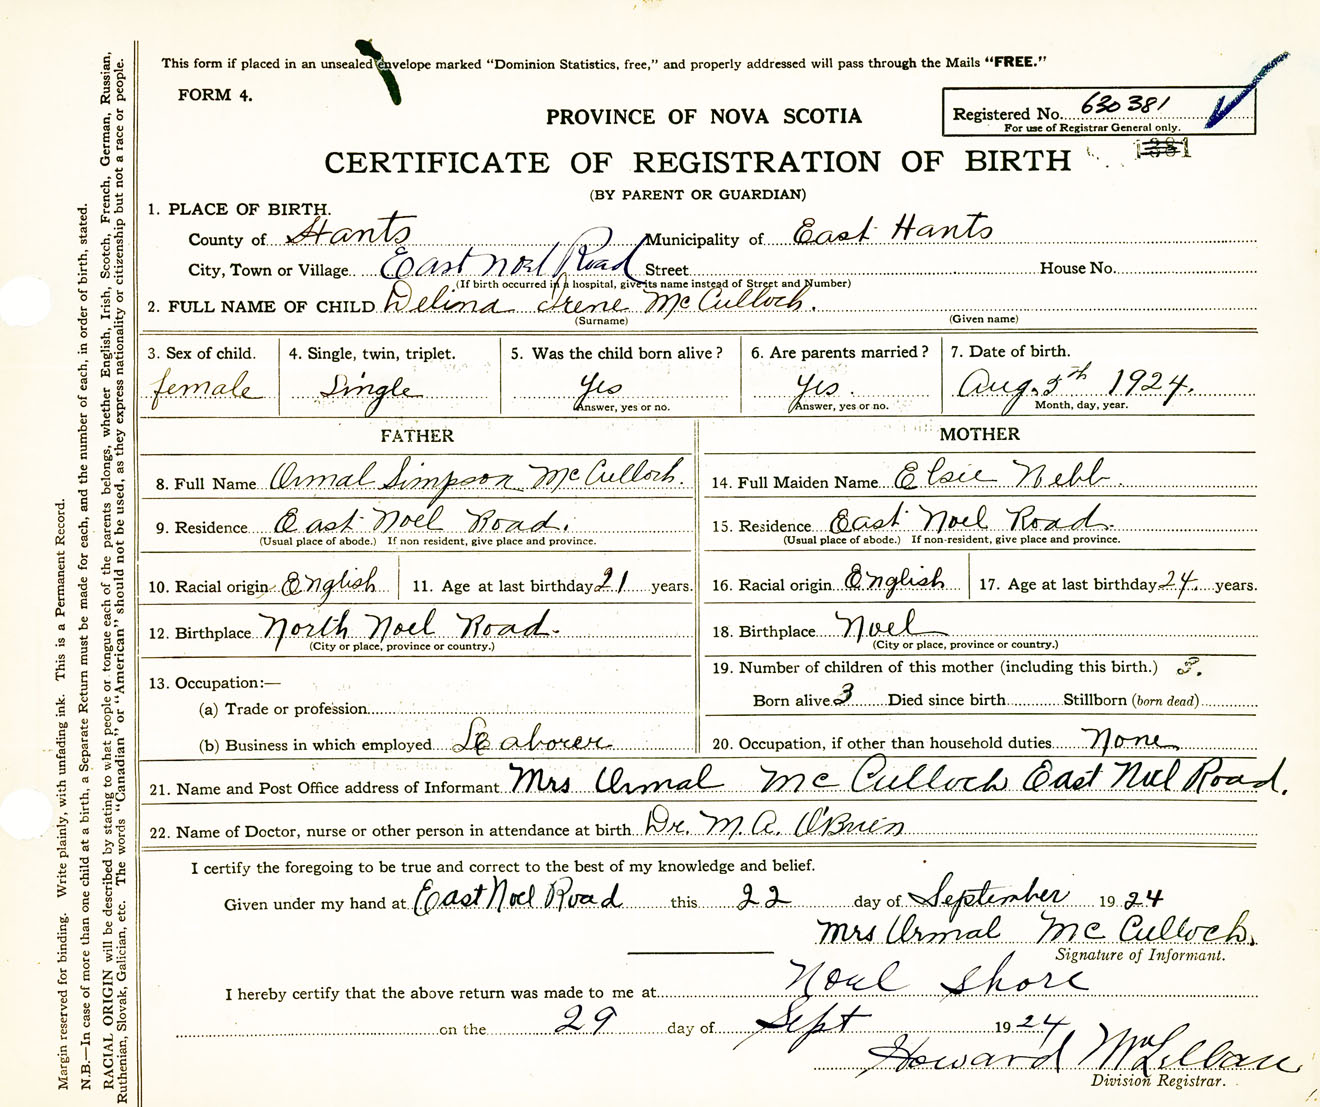 This form if placed in an unsealed envelope marked “Dominion Statistics, free,” and properly addressed will pass through the Mails “FREE.”
FORM 4.
Registered No. 630381
For use of Registrar General only.
PROVINCE OF NOVA SCOTIA
CERTIFICATE OF REGISTRATION OF BIRTH
(BY PARENT OR GUARDIAN)
1. PLACE OF BIRTH.
County of Hants Municipality of East Hants
City, Town or Village East Noel Road Street House No.
(If birth occurred in a hospital, give its name instead of Street and Number)
2. FULL NAME OF CHILD Delina Irene McCulloch.
(Surname) (Given name)
3. Sex of child. 4. Single, twin, triplet. 5. Was the child born alive? 6. Are parents married? 7. Date of birth.
female Single Yes Yes. Aug. 5th 1924.
Answer, yes or no. Answer, yes or no. Month, day, year.
FATHER
8. Full Name Ormal Simpson McCulloch.
9. Residence East Noel Road.
(Usual place of abode.) If non resident, give place and province.
10. Racial origin English 11. Age at last birthday 21 years.
12. Birthplace North Noel Road.
(City or place, province or country.)
13. Occupation:—
(a) Trade or profession
(b) Business in which employed Laborer
MOTHER
14. Full Maiden Name Elsie Webb.
15. Residence East Noel Road.
(Usual place of abode.) If non-resident, give place and province.
16. Racial origin English 17. Age at last birthday 24. years.
18. Birthplace Noel
(City or place, province or country.)
19. Number of children of this mother (including this birth.) 3.
Born alive 3 Died since birth Stillborn (born dead)
20. Occupation, if other than household duties None
21. Name and Post Office address of Informant Mrs Urmal McCulloch East Noel Road.
22. Name of Doctor, nurse or other person in attendance at birth Dr. M.A. O'Brien
I certify the foregoing to be true and correct to the best of my knowledge and belief.
Given under my hand at East Noel Road this 22 day of September 1924
Mrs Urmal McCulloch.
Signature of Informant.
I hereby certify that the above return was made to me at Noel Shore
on the 29 day of Sept 1924
Howard
Division Registrar.
Margin reserved for binding. Write plainly, with unfading ink. This is a Permanent Record.
N.B.—In case of more than one child at a birth, a Separate Return must be made for each, and the number of each, in order of birth, stated.
RACIAL ORIGIN will be described by stating to what people or tongue each of the parents belongs, whether English, Irish, Scotch, French, German, Russian,
Ruthenian, Slovak, Galician, etc. The words “Canadian” or “American” should not be used, as they express nationality or citizenship but not a race or people.